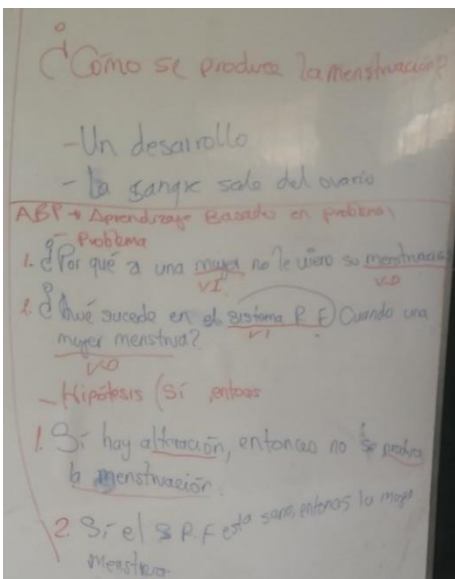 ¿Cómo se produce la menstruación?
- Un desarrollo
- La sangre sale del ovario
ABP → Aprendizaje Basado en problemas
- Problema
1. ¿Por qué a una mujer no le viero su menstruación
VI VD
2. ¿Qué sucede en el sistema R F Cuando una
VI
mujer menstrua?
VD
- Hipótesis (Sí, entonces
1. Sí hay alteración, entonces no se produce
la menstruación.
2. Sí el S R.F está sano, entonces la mujer
menstrua.